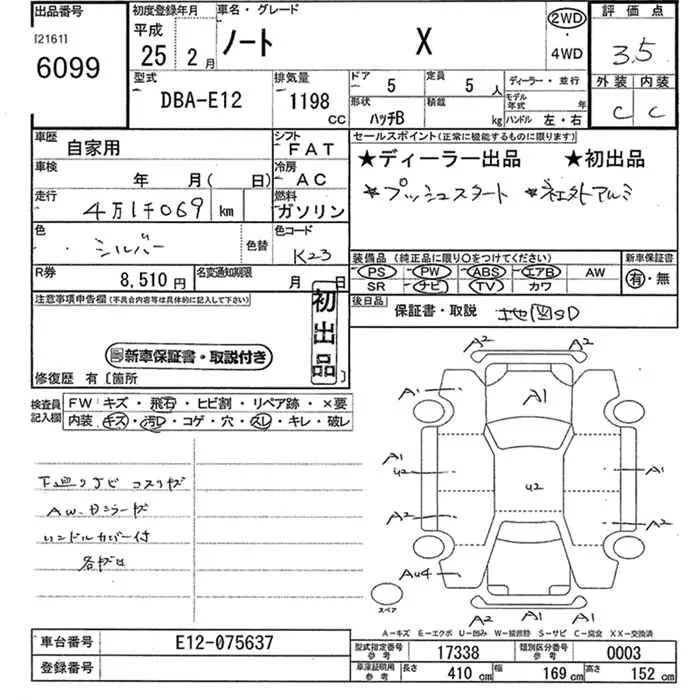 出品番号
[2161]
6099
初度登録年月
平成
25 2月
車名・グレード
ノート X
2WD
・
4WD
評価点
3.5
外装 内装
C C
型式
DBA-E12
排気量
1198
CC
ドア 5
定員 5人
形状 ハッチB
積載 kg
ディーラー・並行
モデル年式 年
ハンドル 左・右
車歴 自家用
シフト FAT
車検 年 月( 日)
冷房 AC
走行 4万1千069 km
燃料 ガソリン
色 シルバー 色替
色コード K23
R券 8,510円
名変通知期限 月 日
セールスポイント(正常に機能するものに限ります)
★ディーラー出品 ★初出品
★プッシュスタート
装備品(純正品に限り○をつけてください)
PS PW ABS エアB AW
SR ナビ TV カワ
新車保証書
有・無
後日品 保証書・取説 地図SD
注意事項申告欄(不具合内容等は具体的に記入して下さい)
初出品
新車保証書・取説付き
修復歴 有〔箇所 〕
検査員記入欄
FW キズ・飛石・ヒビ割・リペア跡・×要
内装 キズ・汚レ・コゲ・穴・スレ・キレ・破レ
下廻りサビ コスリキズ
AW・カラーキズ
ハンドルカバー付
A2 A2
A1 A1
A1 A1
U2 U2
A2 A2
AU4
A2 A1 A1
スペア
A－キズ E－エクボ U－凹み W－補修跡 S－サビ C－腐食 XX－交換済
車台番号 E12-075637
登録番号
型式指定番号 参考 17338
類別区分番号 参考 0003
車庫証明用 参考
長さ 410 cm 幅 169 cm 高さ 152 cm